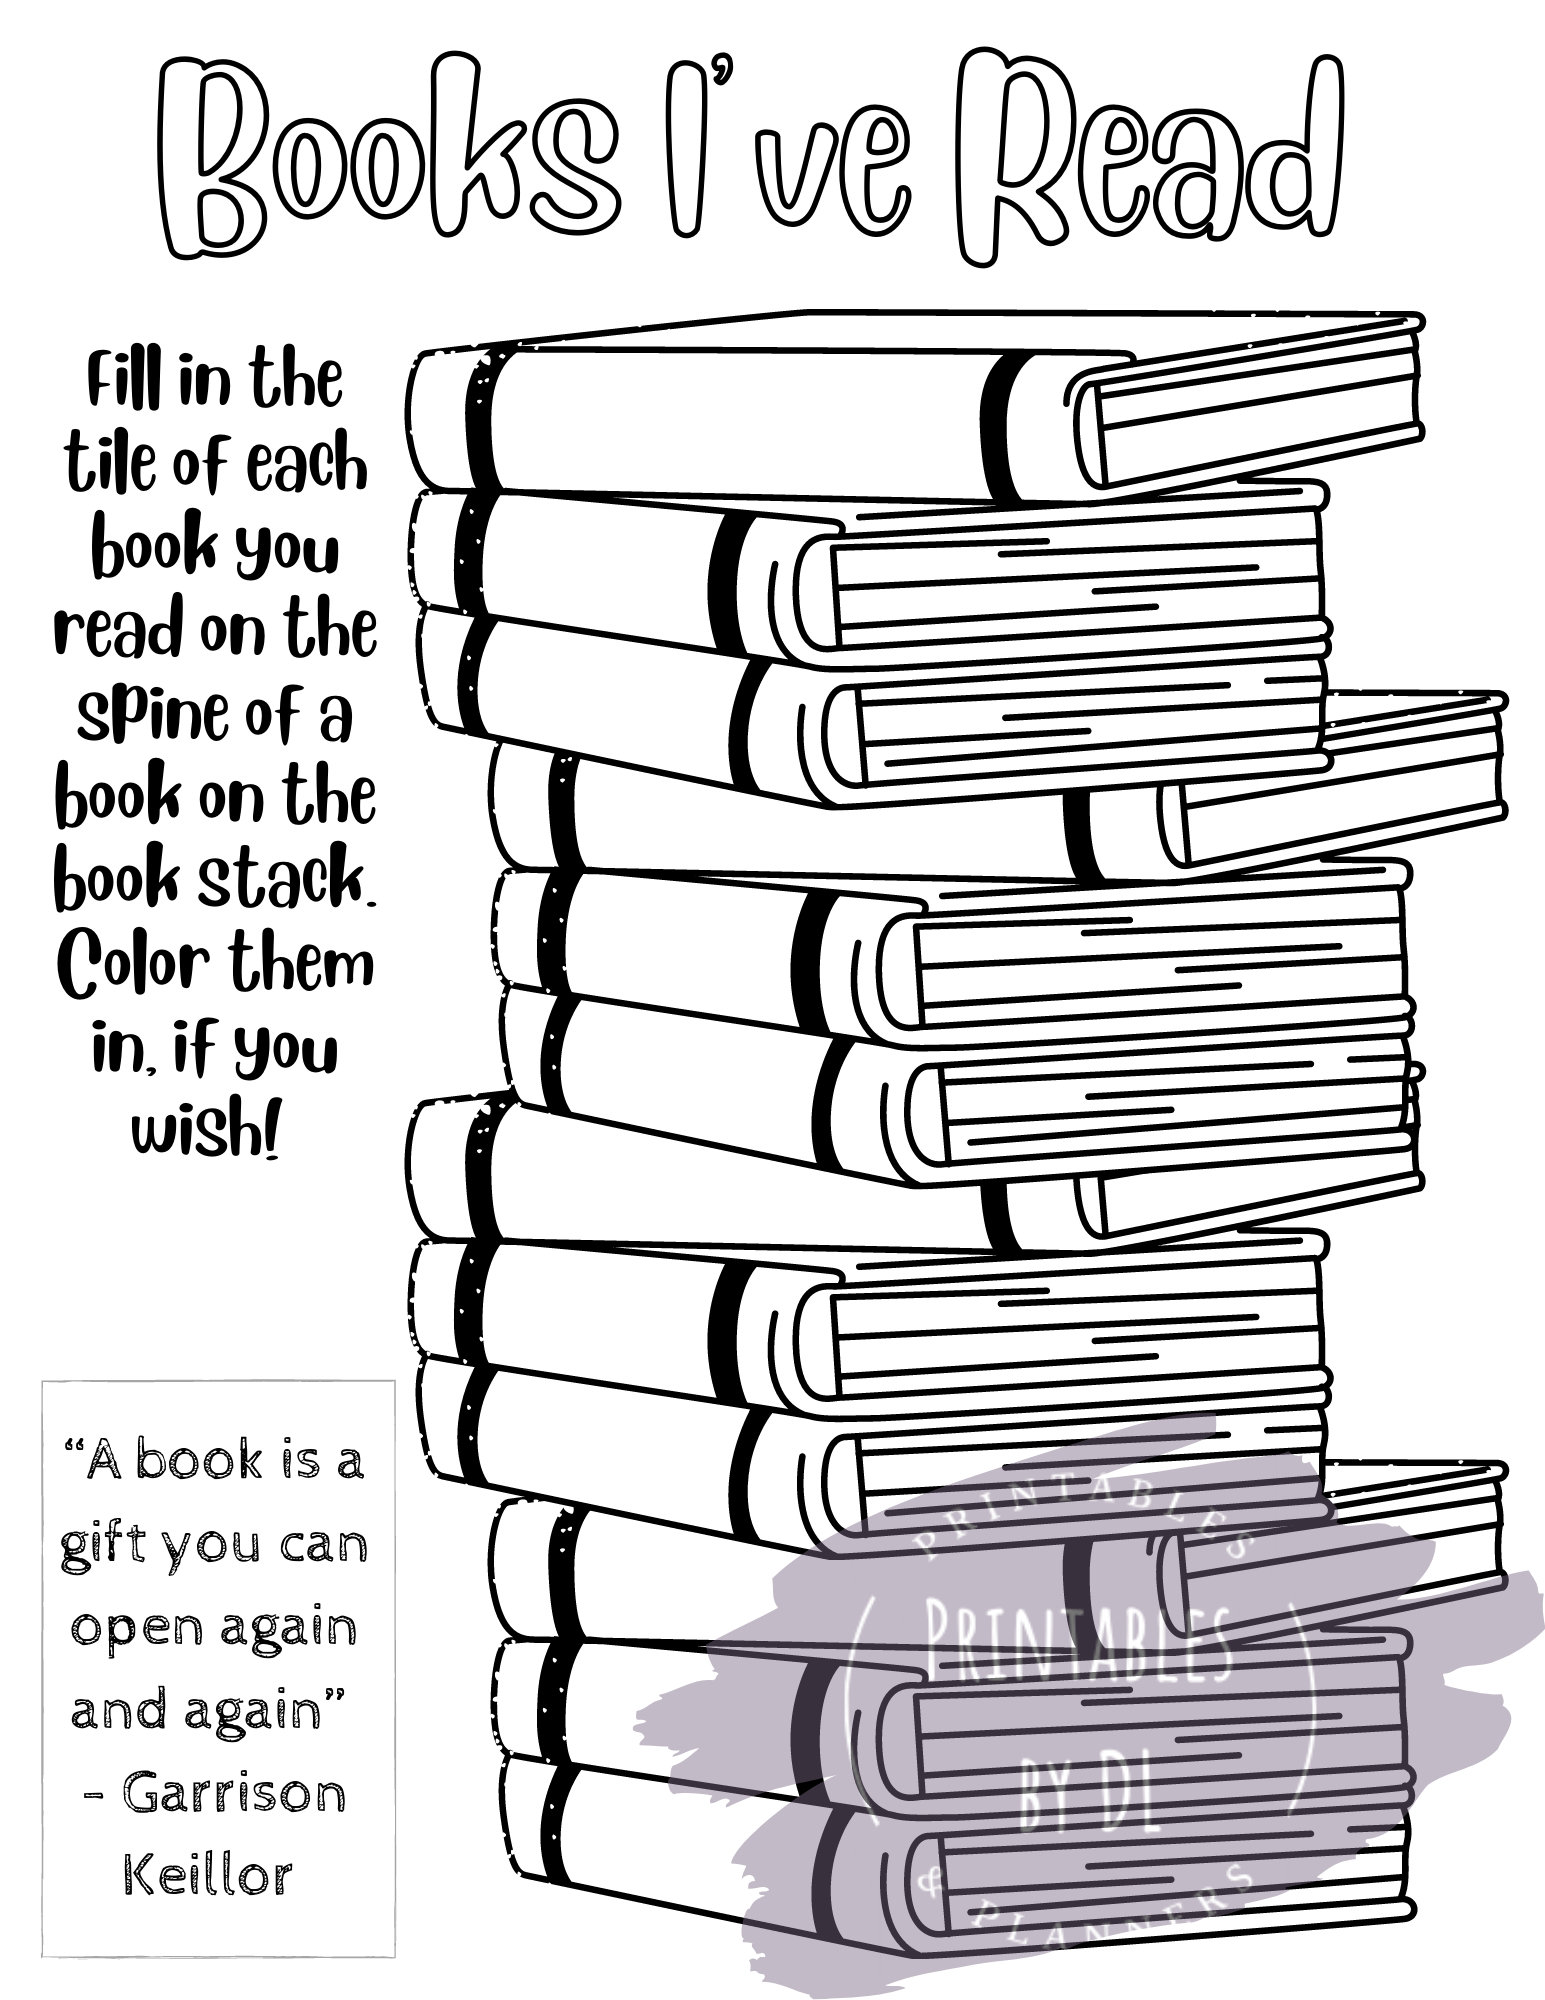 Books I've Read
Fill in the
tile of each
book you
read on the
spine of a
book on the
book stack.
Color them
in, if you
wish!
“A book is a
gift you can
open again
and again”
- Garrison
Keillor
PRINTABLES
PRINTABLES
BY DL
& PLANNERS